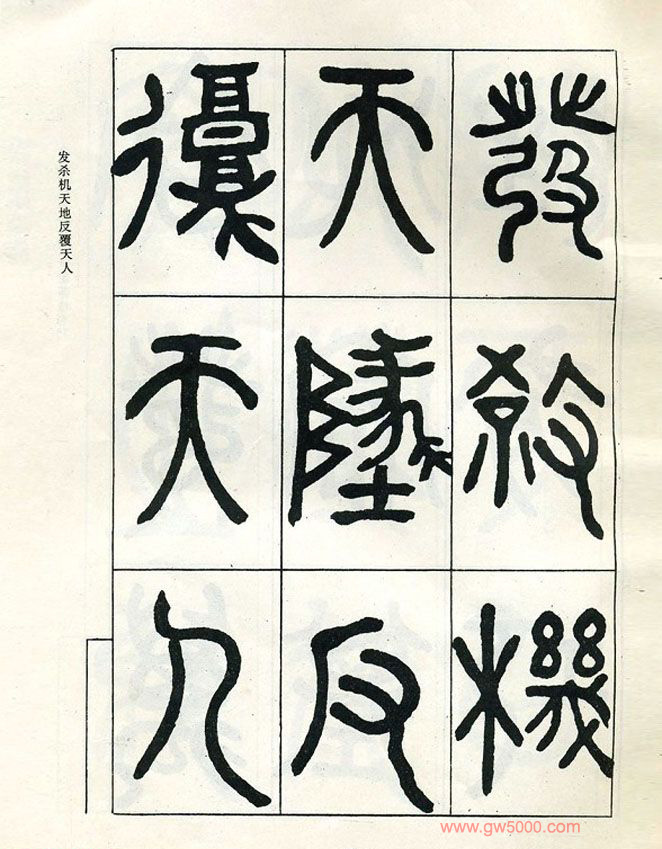 發殺機
天墬反
覆天人
发杀机天地反覆天人
www.gw5000.com